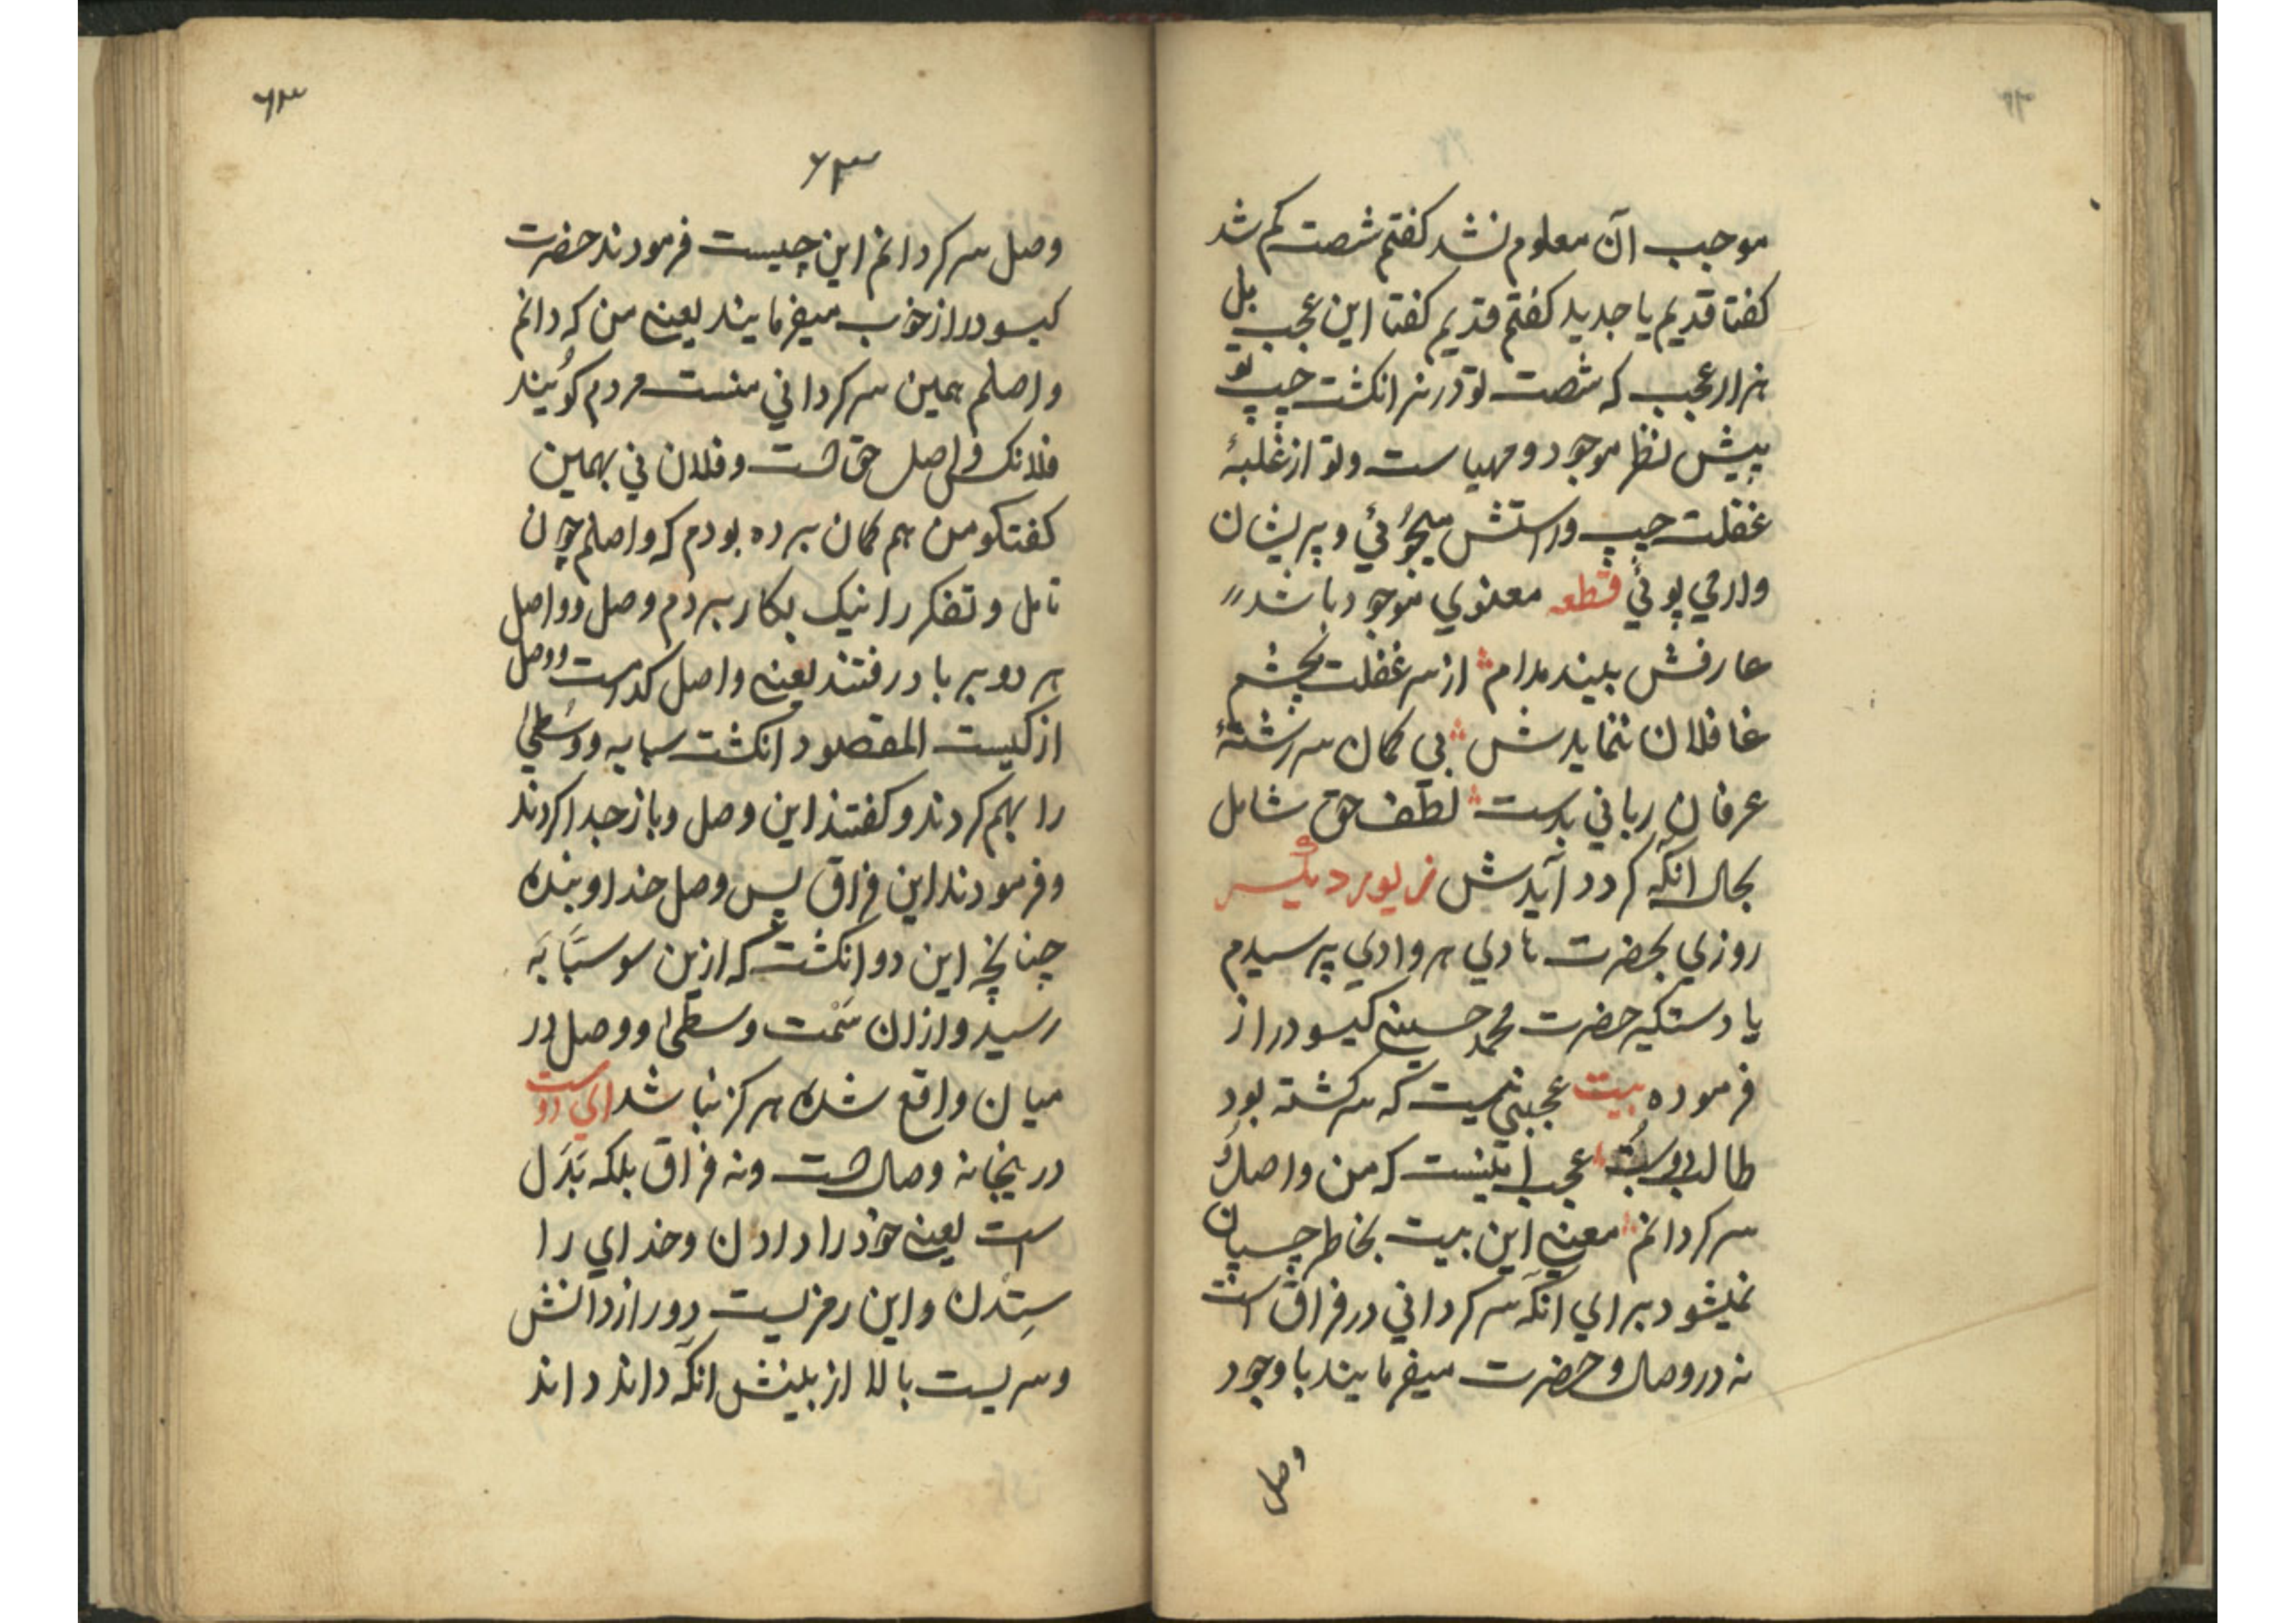 موجب آن معلوم نشد کفتم شصت کم شد
کفتا قدیم یا جدید کفتم قدیم کفتا این عجب بل
هزار عجب که شصت تو در نر انکشت چپ تو
پیش نظر موجود و مهیا ست و تو از غلبهٔ
غفلت چپ و راستش میجوئي و پریشان
وار می پوئي قطعه معنوي موجود باشد
عارفش بیند مدام از سر غفلت بچشم
غافلان ننمایدش بي کمان سر رشتهٔ
عرفان رباني بدست لطف حق شامل
بحال آنکه کردد آیدش زیور دیکر
روزي بحضرت هادي هر وادي پرسیدم
یا دستکیر حضرت محمد حسینی کیسو دراز
فرموده بیت عجبی نیست که سرکشته بود
طالب دوست عجب اینست که من واصل و
سرکردانم معنی این بیت بخاطر چسپان
نمیشود براي آنکه سرکرداني در فراق است
نه در وصال و حضرت میفرمایند باوجود
وصل
۶۳
۶۳
وصل سرکردانم این چیست فرمودند حضرت
کیسو دراز خوب میفرمایند یعنی من که دانم
واصلم همین سرکرداني منست مردم کوئیند
فلانک واصل حق است و فلان ني بهمین
کفتکو من هم کمان برده بودم که واصلم چون
تامل و تفکر را نیک بکار بردم وصل و واصل
هر دو بر باد رفتند یعنی واصل کدامست و وصل
از کیست المقصود انکشت سبابه و وسطیٰ
را بهم کردند و کفتند این وصل و باز جدا کردند
و فرمودند این فراق پس وصل خدا و بنده
چنانچه این دو انکشت که ازین سو سبّابَه
رسید و ازان سَمْت وسطیٰ و وصل در
میان واقع شده هرکز نباشد اي دوست
درینجا نه وصال است و نه فراق بلکه بَدَل
است یعنی خود را دادن و خداي را
سِتدن و این رمزیست دور از دانش
و سریست بالا از بینش آنکه داند داند